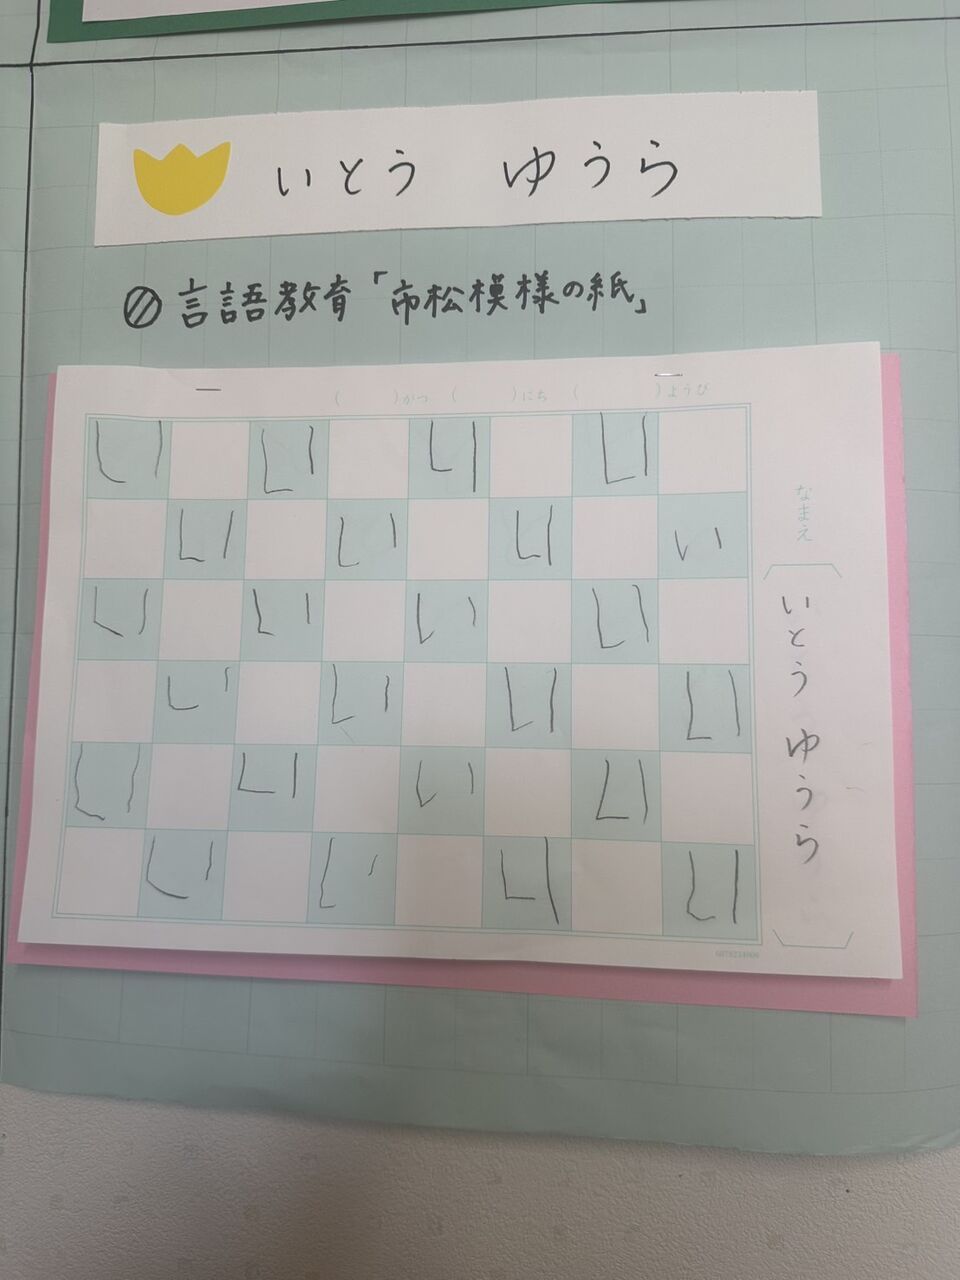 いとう ゆうら
言語教育「市松模様の紙」
( )がつ ( )にち ( )ようび
い い い い
い い い い
い い い い
い い い い
い い い い
い い い い
なまえ
いとう ゆうら